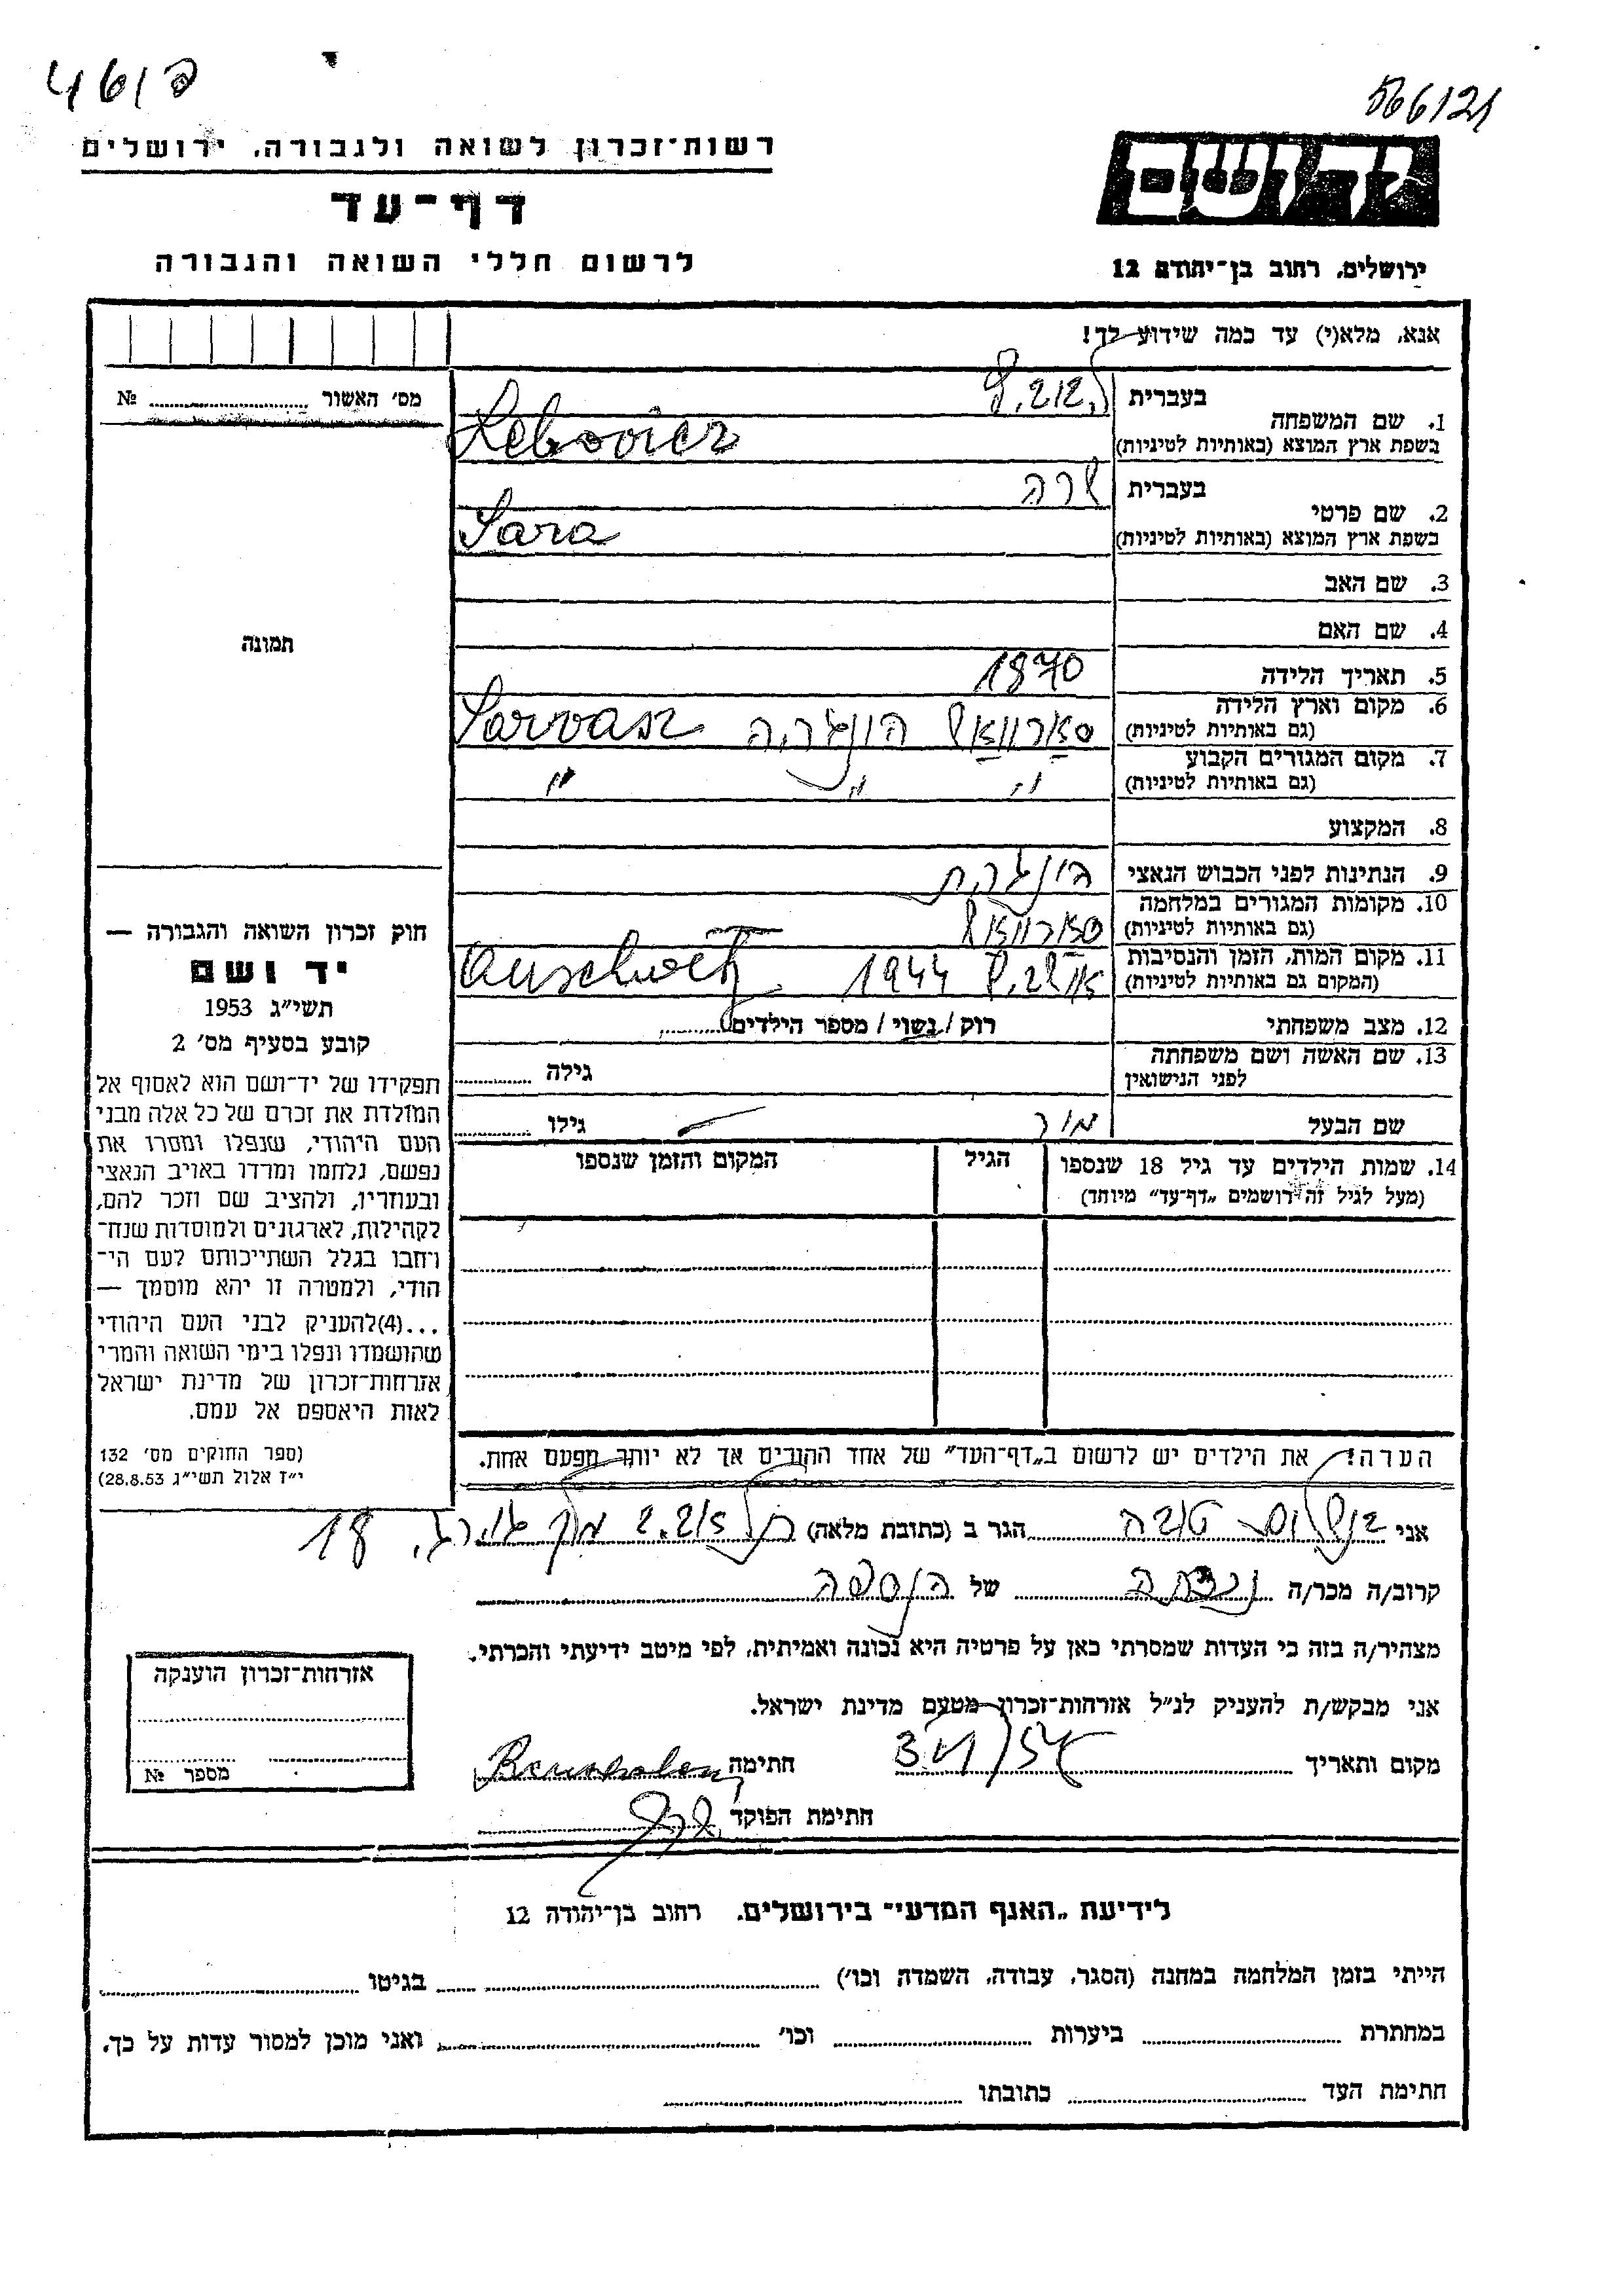 רשות־זכרון לשואה ולגבורה, ירושלים
דף־עד
לרשום חללי השואה והגבורה
יד ושם
ירושלים, רחוב בן־יהודה 12
אנא, מלא(י) עד כמה שידוע לך!
מס׳ האשור № 
תמונה
1. שם המשפחה
בעברית
בשפת ארץ המוצא (באותיות לטיניות) Lebovicz
2. שם פרטי
בעברית שרה
בשפת ארץ המוצא (באותיות לטיניות) Sara
3. שם האב
4. שם האם
5. תאריך הלידה 1870
6. מקום וארץ הלידה
(גם באותיות לטיניות) סארוואש הונגריה Sarvasz
7. מקום המגורים הקבוע
(גם באותיות לטיניות) " " "
8. המקצוע
9. הנתינות לפני הכבוש הנאצי הונגרית
10. מקומות המגורים במלחמה
(גם באותיות לטיניות) סארוואש
11. מקום המות, הזמן והנסיבות
(המקום גם באותיות לטיניות) 1944
12. מצב משפחתי רוק / נשוי / מספר הילדים
13. שם האשה ושם משפחתה
לפני הנישואין גילה
שם הבעל מור גילו
14. שמות הילדים עד גיל 18 שנספו
(מעל לגיל זה רושמים „דף־עד״ מיוחד)
הגיל
המקום והזמן שנספו
חוק זכרון השואה והגבורה —
יד ושם
תשי״ג 1953
קובע בסעיף מס׳ 2
תפקידו של יד־ושם הוא לאסוף אל
המולדת את זכרם של כל אלה מבני
העם היהודי, שנפלו ומסרו את
נפשם, נלחמו ומרדו באויב הנאצי
ובעוזריו, ולהציב שם וזכר להם,
לקהילות, לארגונים ולמוסדות שנח־
רחבו בגלל השתייכותם לעם הי־
הודי, ולמטרה זו יהא מוסמך —
...(4)להעניק לבני העם היהודי
שהושמדו ונפלו בימי השואה והמרי
אזרחות־זכרון של מדינת ישראל
לאות היאספם אל עמם.
(ספר החוקים מס׳ 132
י״ז אלול תשי״ג 28.8.53)
הערה! את הילדים יש לרשום ב„דף־העד״ של אחד ההורים אך לא יותר מפעם אחת.
אני בנשלום טובה הגר ב (כתובת מלאה) 18
קרוב/ה מכר/ה נכדתה של הנספה
מצהיר/ה בזה כי העדות שמסרתי כאן על פרטיה היא נכונה ואמיתית, לפי מיטב ידיעתי והכרתי.
אני מבקש/ת להעניק לנ״ל אזרחות־זכרון מטעם מדינת ישראל.
מקום ותאריך חתימה
חתימת הפוקד
אזרחות־זכרון הוענקה
מספר №
לידיעת „האגף המדעי״ בירושלים, רחוב בן־יהודה 12
הייתי בזמן המלחמה במחנה (הסגר, עבודה, השמדה וכו׳) בגיטו
במחתרת ביערות וכו׳ ואני מוכן למסור עדות על כך.
חתימת העד כתובתו